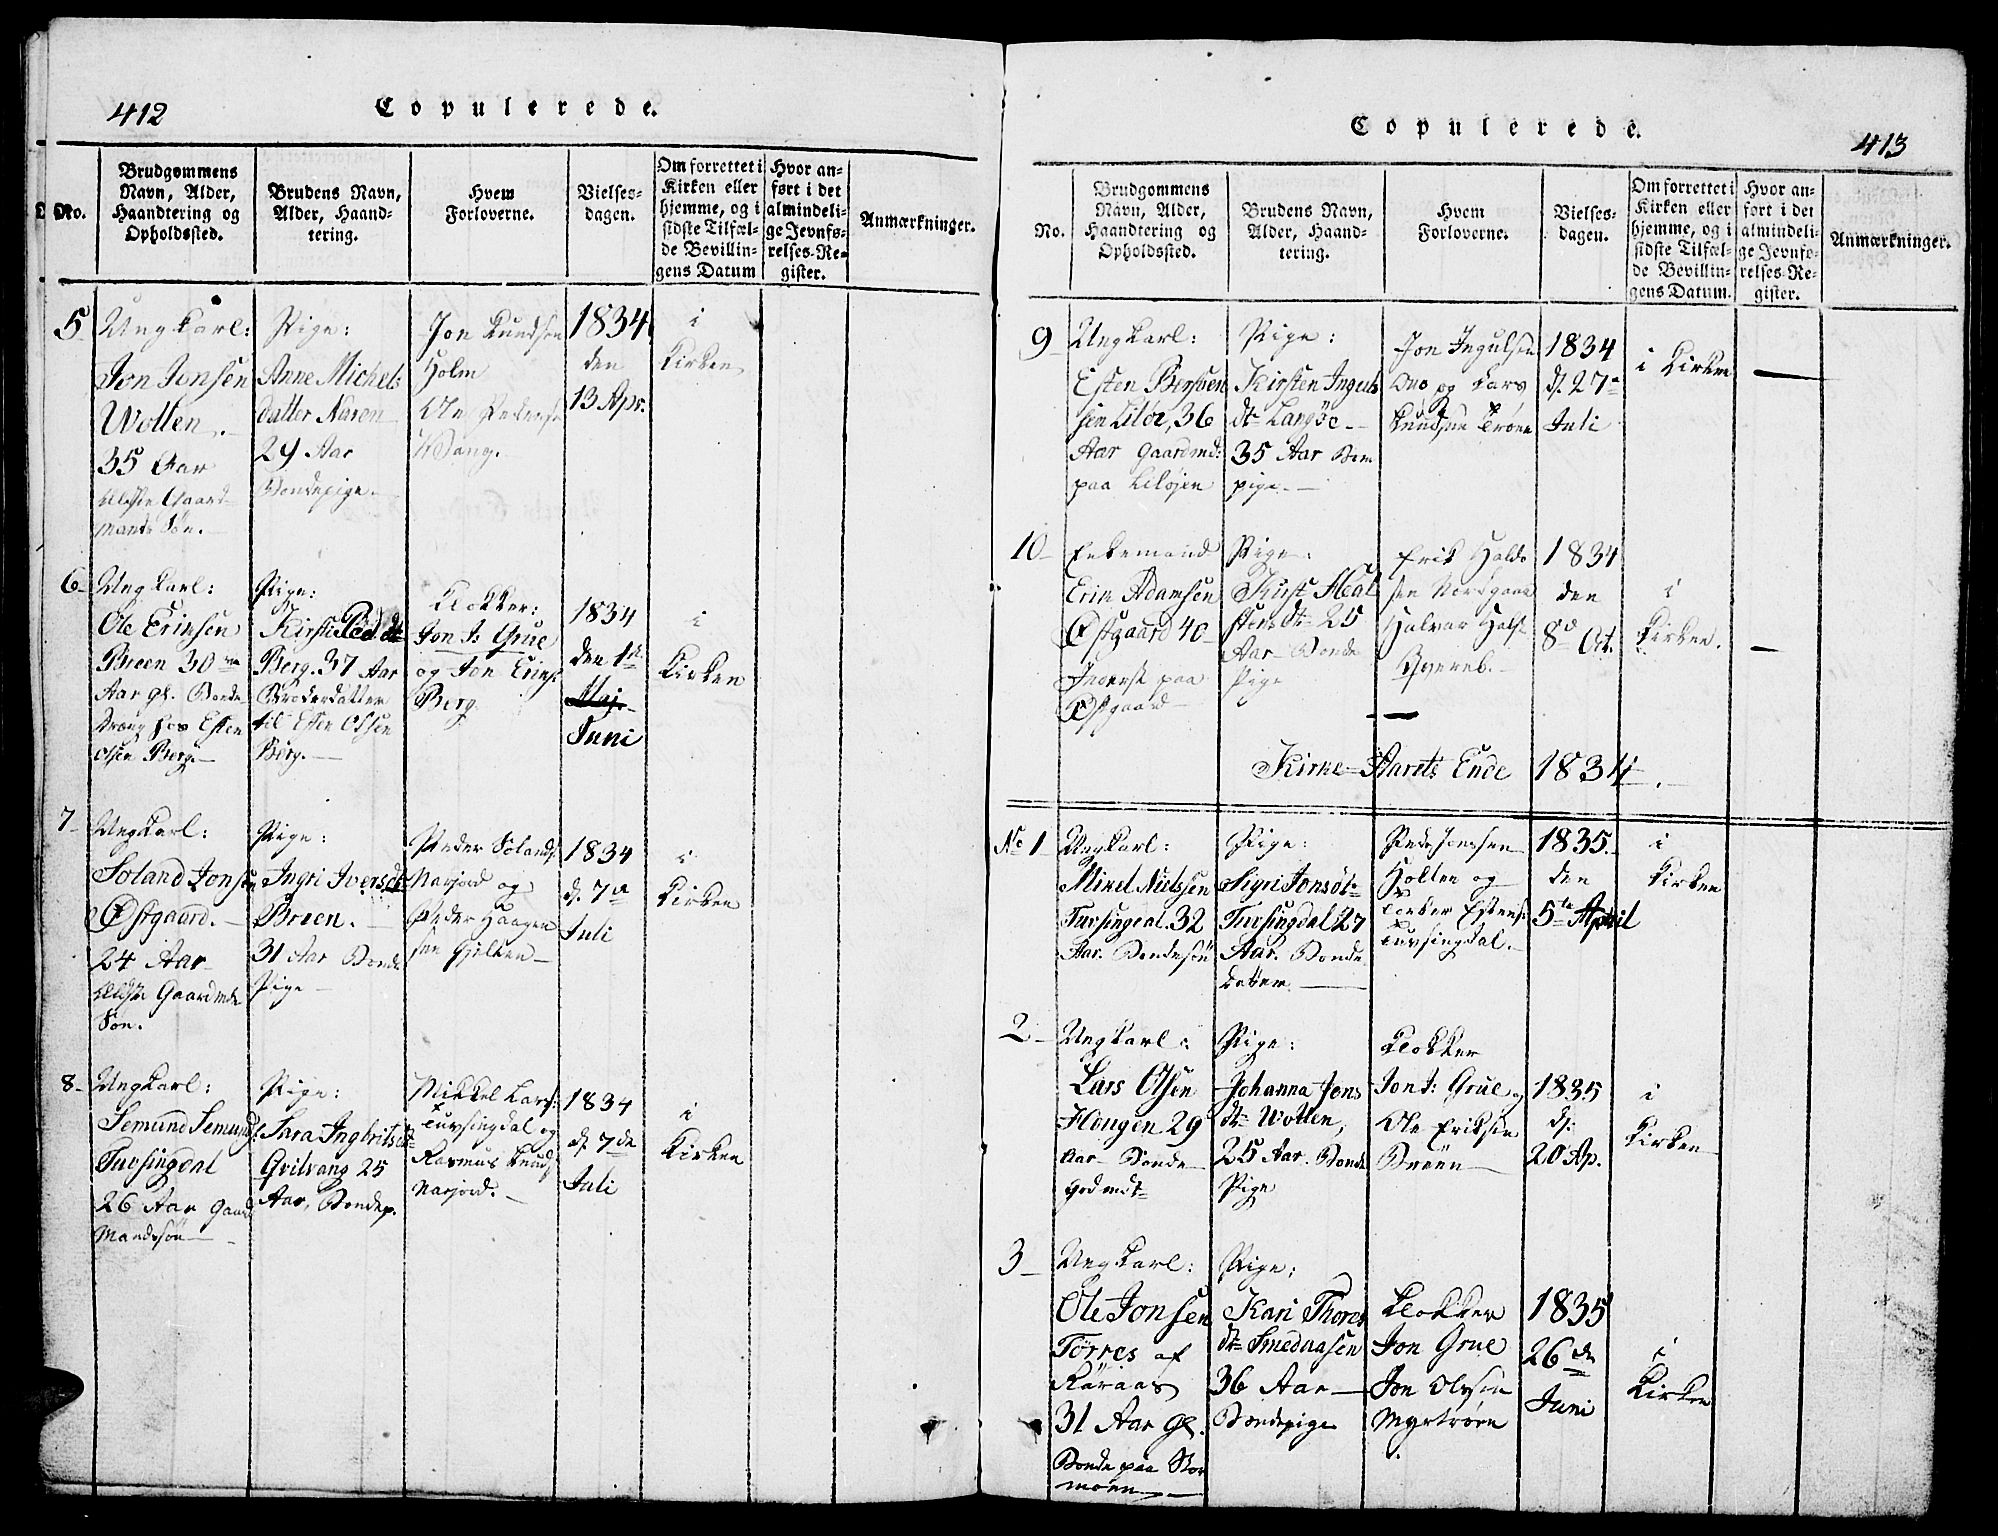 412
Copulerede.
No.
Brudgommens
Navn, Alder,
Haandtering og
Opholdssted.
Brudens Navn,
Alder, Haand-
tering.
Hvem
Forloverne.
Vielses-
dagen.
Om forrettet i
Kirken eller
hjemme, og i
sidste Tilfæl-
de Bevillin-
gens Datum
Hvor an-
ført i det
almindeli-
ge Jevnfø-
relses-Re-
gister.
Anmærkninger.
5
Ungkarl:
Jon Jonsen
Wollen
35 Aar
Gaard-
mands Søn.
Pige:
Anne Michels
datter Naren
29 Aar
Bondepige.
Jon Knudsen
Holm
Ole Peders
Vang.
1834
den
13 Apr.
i
Kirken
6
Ungkarl:
Ole Eriksen
Breen 30
Aar gl. Bonde
dreng hos Esten
Olsen Berg.
Pige:
Kirsti Ped dt
Berg. 37 Aar
Broderdatter
til Esten Olsen
Berg.
Klokker:
Jon J: Grue
og Jon Eriks
Berg.
1834
den 1ste
Maj.
Juni
i
Kirken
7
Ungkarl:
Soland Jonsen
Østgaard.
24 Aar
Gaardmds
Søn.
Pige:
Ingri Iversdt
Breen.
31 Aar Bonde
Pige
Peder Solands
Narjord og
Peder Haagen
sen Gjelten
1834
d. 7de
Juli
i
Kirken
8
Ungkarl:
Semund Semunds
Tufsingdal
26 Aar Gaard
Mandssøn
Pige:
Sara Ingbritsdt
Qvilvang 25
Aar, Bondep.
Mikkel Lars:
Tufsingdal og
Rasmus Knuds
Narjord.
1834
d. 7de
Juli
i
Kirken
Copulerede.
413
No.
Brudgommens
Navn, Alder,
Haandtering og
Opholdssted.
Brudens Navn,
Alder, Haand-
tering.
Hvem
Forloverne.
Vielses-
dagen.
Om forrettet i
Kirken eller
hjemme, og i
sidste Tilfæl-
de Bevillin-
gens Datum.
Hvor an-
ført i det
almindeli-
ge Jevnfø-
relses-Re-
gister.
Anmærkninger.
9
Ungkarl:
Esten Bersven
sen Liløe, 36
Aar Gaardmd:
paa Liløjen
Pige:
Kirsten Inguls
dt Langøe
35 Aar Bon
pige
Jon Ingulsen
og Lars
Knudsen Trøen
1834
d. 27de
Juli
i Kirken
10
Enkemand
Erik Adamsen
Østgaard 40
Inderst paa
Østgaard
Pige:
Kirst Hal
stens dt 25
Aar Bonde
Pige
Erik Halds
sen Nordgaard
Halvar Halst
1834
den
8de Oct.
i
Kirken.
Kirke-Aarets Ende 1834.
No 1
Ungkarl:
Mikel Nielssen
Tufsingdal 32
Aar. Bondesøn
Pige:
Sigri Jonsdt
Tufsingdal 27
Aar. Bonde
datter
Peder Jonssen
Holten og
Tufsingdal.
1835.
den
5te April
i
Kirken
2
Ungkarl:
Lars Olsen
Hougen 29
Aar Bonde
Pige:
Johanna Jons
dt Wollen,
25 Aar. Bonde
Pige
Klokker
Jon J: Grue og
Ole Eriksen
Breen
1835
d:
20 Ap.
i
Kirken
3
Ungkarl:
Ole Jonsen
Tørres af
Røraas
31 Aar gl.
Bonde paa Mor
moen
Pige:
Kari Thores
dt Smedaasen
36 Aar
Bondepige
Klokker
Jon Grue
Jon Olesen
Myrtrøen
1835
26de
Juni
i
Kirken